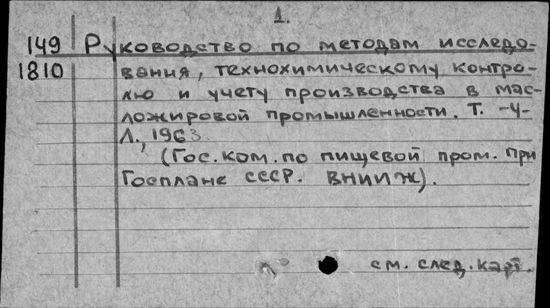 1.
149 Руководство по методам исследо-
1810 вания, технохимическому контро-
лю и учету производства в мас-
ложировой промышленности. Т. -4-
Л., 1963.
(Гос. ком. по пищевой пром. при
Госплане СССР. ВНИИЖ).
см. след. карт.